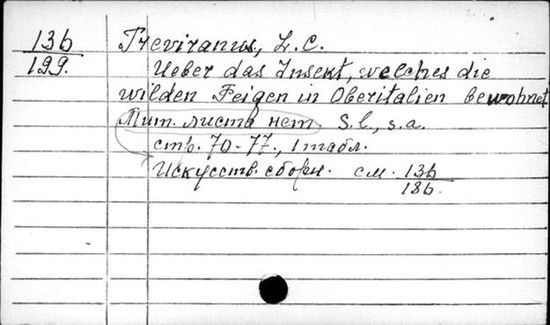 13b Treviranus, L.C.
199. Ueber das Insekt, welches die
wilden Feigen in Oberitalien bewohnet
Тит. листа нет. S.l., s.a.
стр. 70-77., 1 табл.
Искусств. сборн. см. 13b
18b.